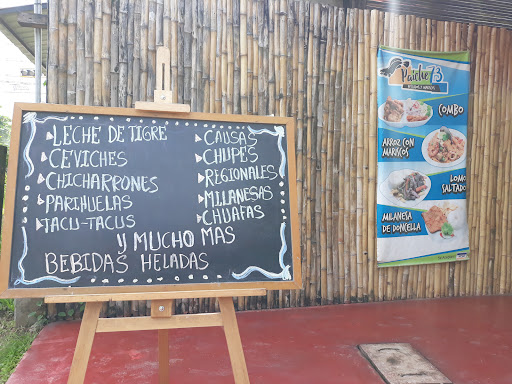 LECHE DE TIGRE
CEVICHES
CHICHARRONES
PARIHUELAS
TACU-TACUS
CAUSAS
CHUPES
REGIONALES
MILANESAS
CHUAFAS
Y MUCHO MAS
BEBIDAS HELADAS
Paiche 73
COMBO
ARROZ CON
MARISCOS
LOMO
SALTADO
MILANESA
DE DONCELLA